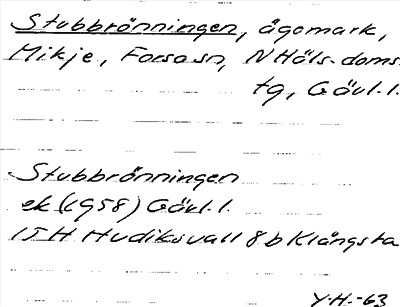 Stubbrönningen, ägomark,
Mikje, Forsa sn, N Häls. doms.
tg, Gävl. l.
Stubbrönningen
ek (1958) Gävl. l.
15H Hudiksvall 8b Klångsta
Y.H.-63